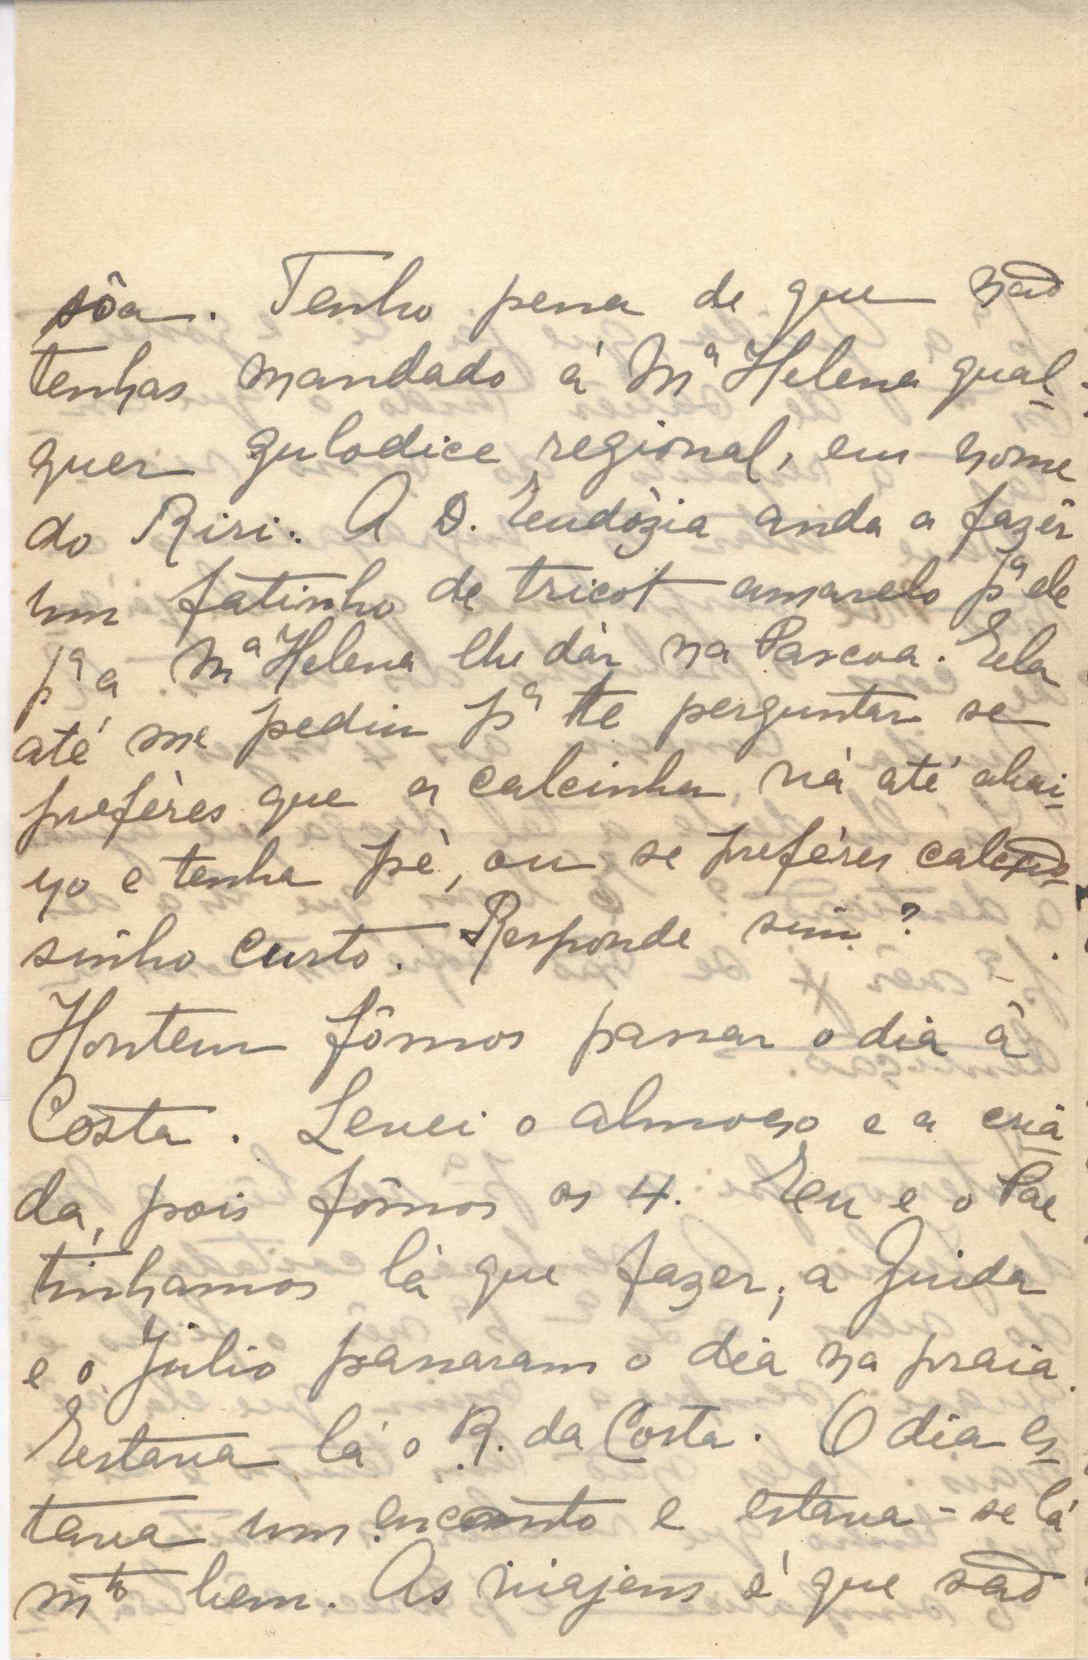 sôa. Tenho pena de que não
tenhas mandado á Mª Helena qual-
quer gulodice regional, em nome
do Riri. A D. Eudòzia anda a fazêr
um fatinho de tricot amarelo pª ele
pª a Mª Helena lhe dár na Pascoa. Ela
até me pediu pª te perguntar se
prefères que a calcinha vá até abai-
xo e tenha pé, ou se prefères calção-
sinho curto. Responde sim?
Hontem fômos passar o dia á
Costa. Levei o almoço e a cria
da, pois fômos os 4. Eu e o Pae
tinhamos lá que fazer, a Guida
e o Júlio passaram o dia na praia.
Estava lá o R. da Costa. O dia es-
tava um encanto e estava-se lá
mto bem. As viajens é que são